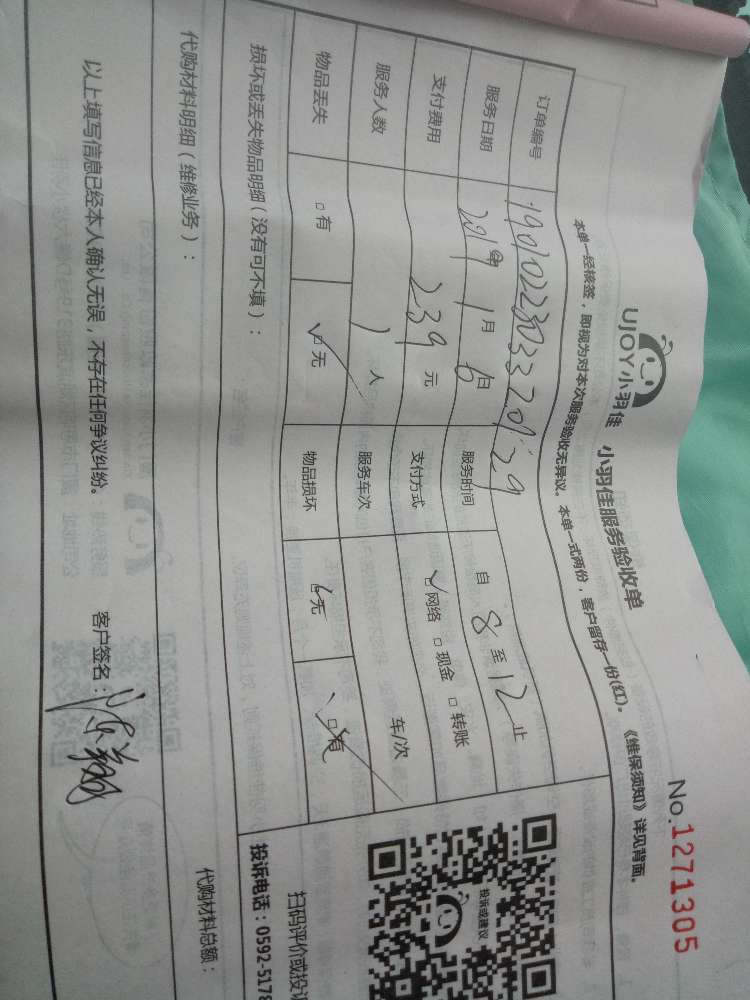 No.1271305
UJOY小羽佳 小羽佳服务验收单
本单一经核签，即视为对本次服务验收无异议。本单一式两份，客户留存一份(红)。《维保须知》详见背面。
订单编号
服务日期 2019年 1月 6日 服务时间 自 8 至 12 止
支付费用 239 元 支付方式 网络 □ 现金 □ 转账
服务人数 1 人 服务车次 车/次
物品丢失 □ 有 □ 无 物品损坏 无 □ 有
损坏或丢失物品明细（没有可不填）：
代购材料明细（维修业务）：
代购材料总额：
以上填写信息已经本人确认无误，不存在任何争议纠纷。 客户签名：
投诉或建议
扫码评价或投诉
投诉电话：0592-5178